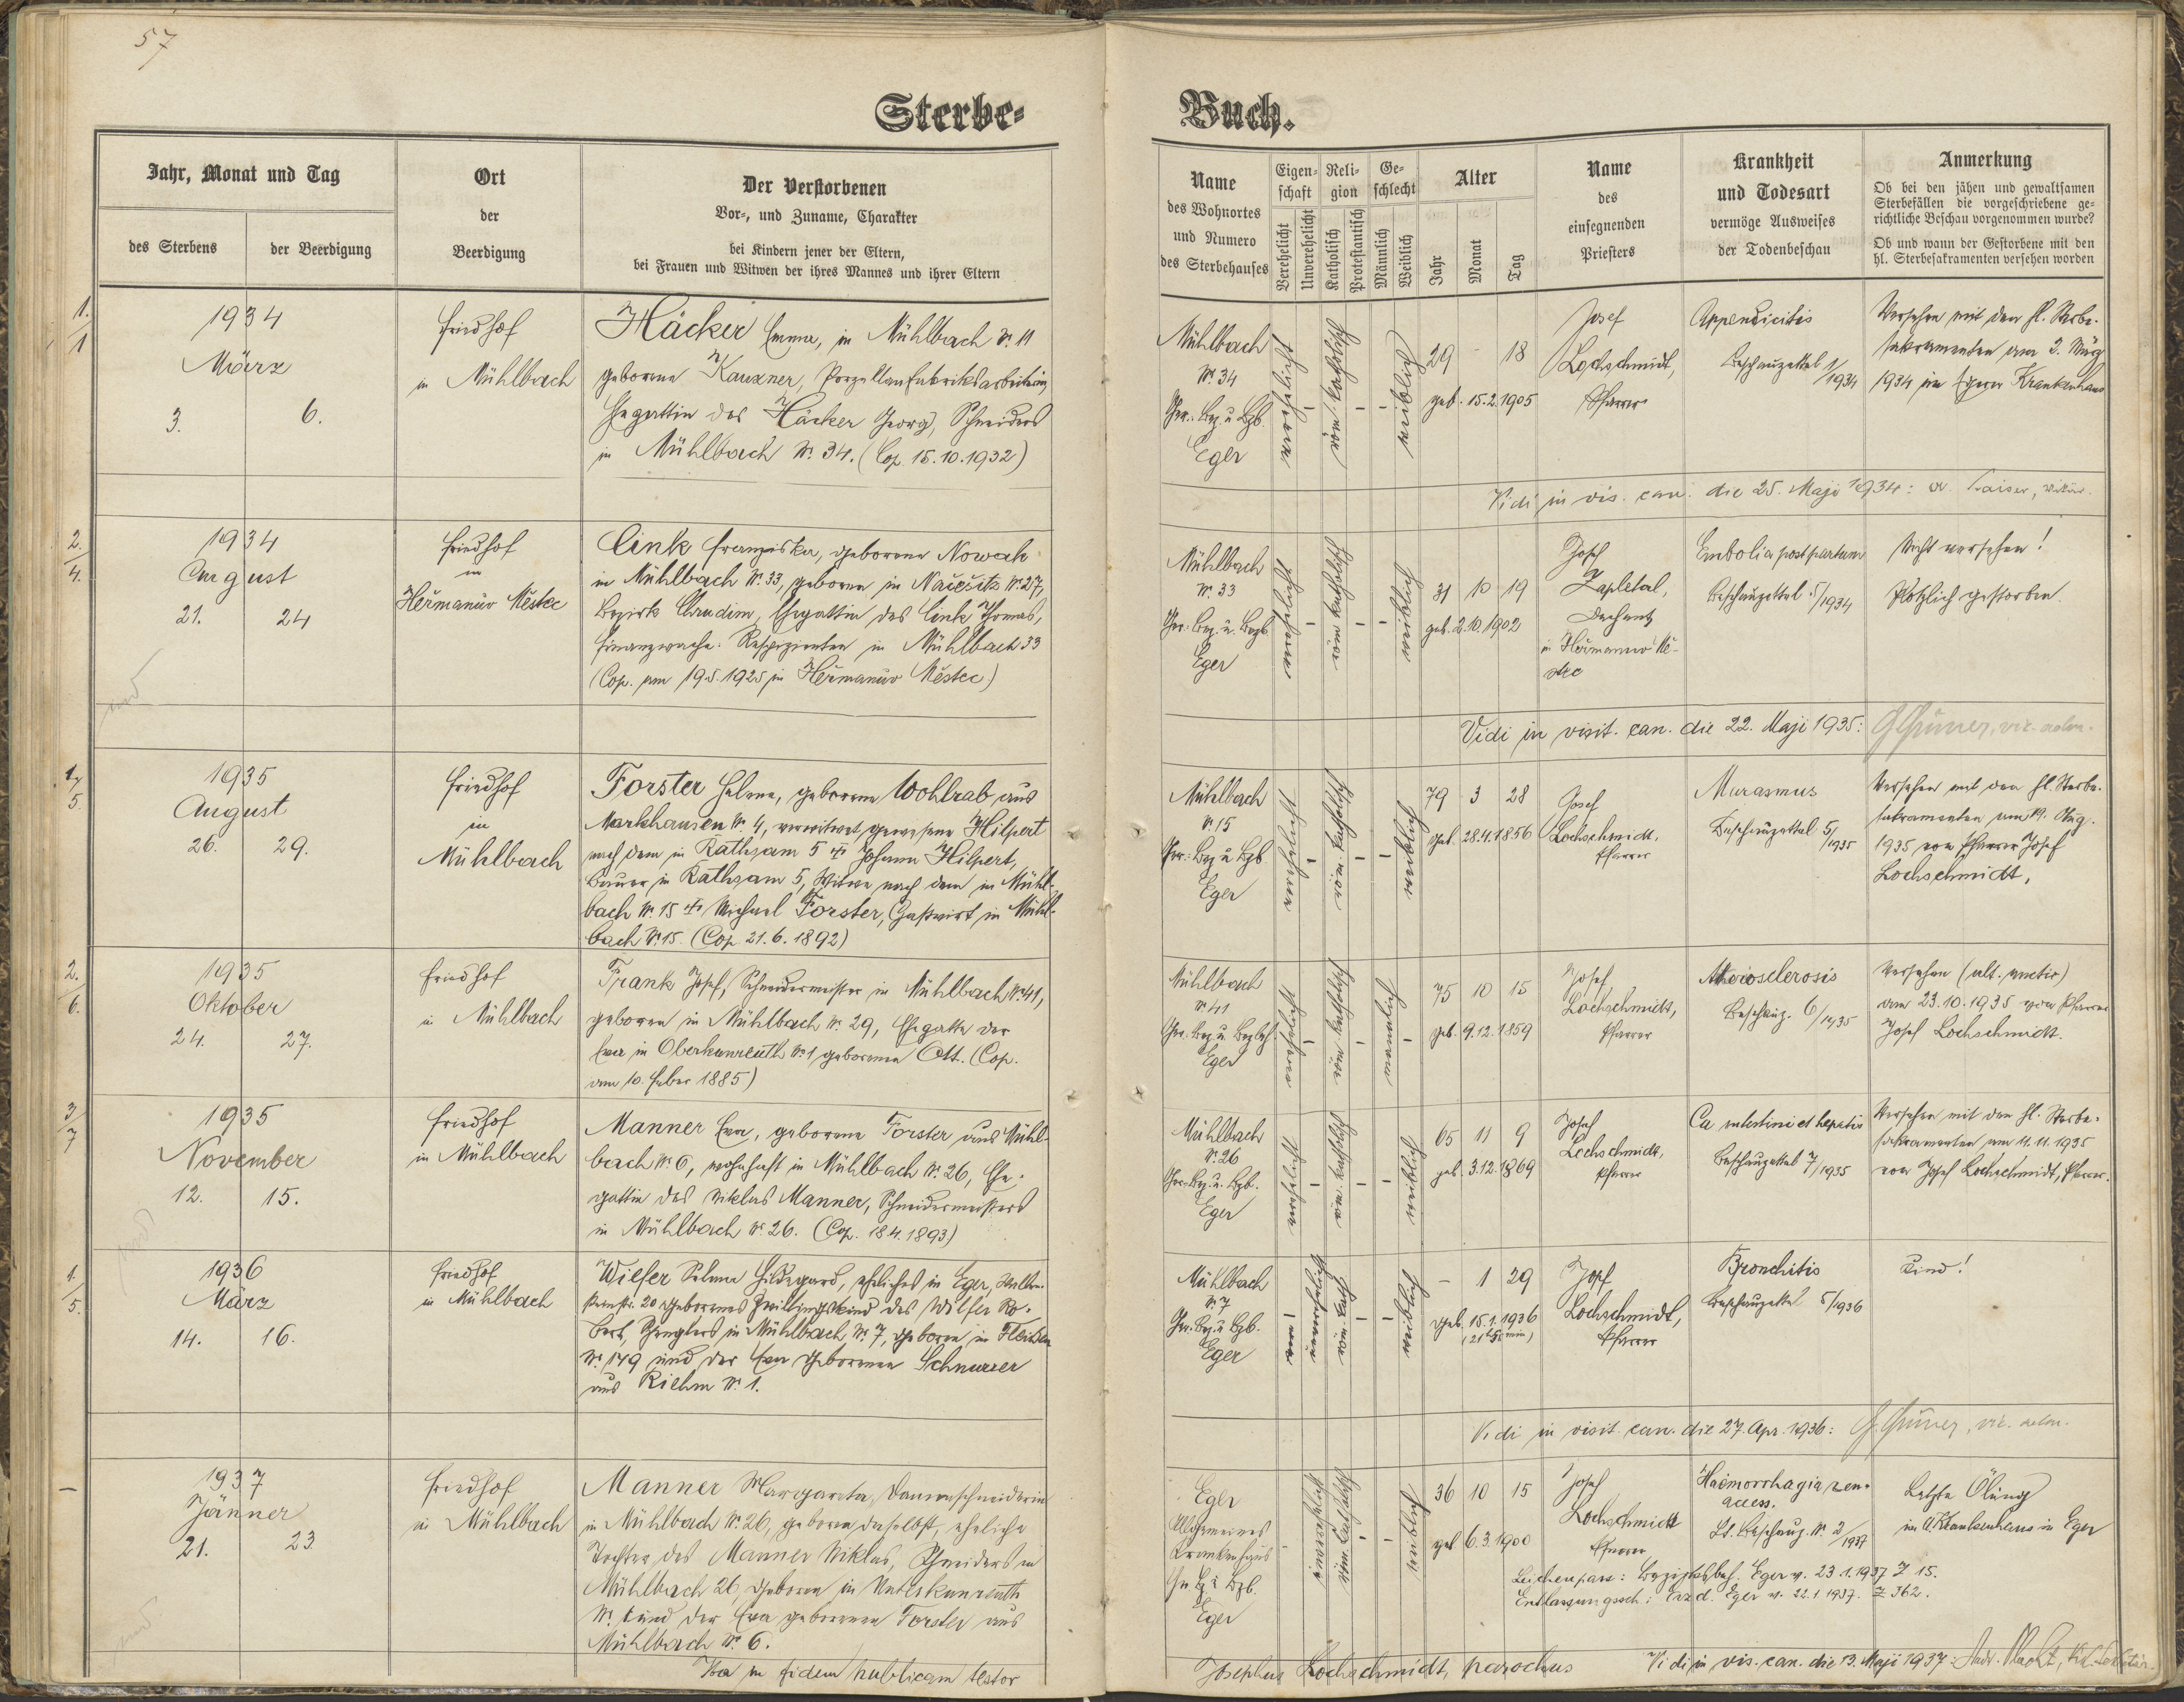 57
Sterbe-
Jahr, Monat und Tag
des Sterbens
der Beerdigung
Ort
der
Beerdigung
Der Verstorbenen
Vor-, und Zuname, Charakter
bei Kindern jener der Eltern,
bei Frauen und Witwen der ihres Mannes und ihrer Eltern
1.
1
1934
März
3. 6.
Friedhof
in Mühlbach
Häcker Emma, in Mühlbach Nr. 11
geborene Kauzner, Porzellanfabriksarbeiterin,
Ehegattin des Häcker Georg, Schneiders
in Mühlbach Nr. 34. (Cop. 15.10.1932)
2.
4.
1934
August
21. 24
Friedhof
in
Heřmanův Městec
Cink Franziska, geborene Nowak
in Mühlbach Nr. 33, geboren in Načešitz Nr. 27,
Bezirk Chrudim, Ehegattin des Cink Thomas,
Finanzwache-Respizienten in Mühlbach 33
(Cop. am 19.5.1925 in Heřmanův Městec)
1.
5.
1935
August
26. 29.
Friedhof
in
Mühlbach
Forster Helene, geborene Wohlrab aus
Markhausen Nr. 4, verwitwet gewesene Hilpert
nach dem in Rathsam 5 † Johann Hilpert,
Bauer in Rathsam 5, Witwe nach dem in Mühl-
bach Nr. 15 † Michael Forster, Gastwirt in Mühl-
bach Nr. 15. (Cop. 21.6.1892)
2.
6.
1935
Oktober
24. 27.
Friedhof
in Mühlbach
Frank Josef, Schneidermeister in Mühlbach Nr. 41,
geboren in Mühlbach Nr. 29, Ehegatte der
Eva in Oberkunreuth Nr. 1 geborenen Ott. (Cop.
am 10. Feber 1885)
3
7
1935
November
12. 15.
Friedhof
in Mühlbach
Manner Eva, geborene Forster aus Mühl-
bach Nr. 6, wohnhaft in Mühlbach Nr. 26, Ehe-
gattin des Niklas Manner, Schneidermeisters
in Mühlbach Nr. 26. (Cop. 18.4.1893)
1.
5.
1936
März
14. 16.
Friedhof
in Mühlbach
Wilfer Selma Hildegard, eheliches in Eger, Wallen-
steinstr. 20 geborenes Zwillingskind des Wilfer Ro-
bert, Spenglers in Mühlbach Nr. 7, geboren in Fleißen
Nr. 149 und der Eva geborenen Schnurrer
aus Riehm Nr. 1.
1937
Jänner
21. 23
Friedhof
in Mühlbach
Manner Margareta, Damenschneiderin
in Mühlbach Nr. 26, geboren daselbst, eheliche
Tochter des Manner Niklas, Schneiders in
Mühlbach 26, geboren in Unterkunreuth
Nr. 1 und der Eva geborenen Forster aus
Mühlbach Nr. 6.
Ita in fidem publicam testor
Buch.
Name
des Wohnortes
und Numero
des Sterbehauses
Eigenschaft
Verehelicht
Unverehelicht
Religion
Katholisch
Protestantisch
Geschlecht
Männlich
Weiblich
Alter
Jahr
Monat
Tag
Name
des
einsegnenden
Priesters
Krankheit
und Todesart
vermöge Ausweises
der Todenbeschau
Anmerkung
Ob bei den jähen und gewaltsamen
Sterbefällen die vorgeschriebene ge-
richtliche Beschau vorgenommen wurde?
Ob und wann der Gestorbene mit den
hl. Sterbesakramenten versehen worden
Mühlbach
Nr. 34
Ger. Bez. u. Bzb.
Eger
verehelicht
röm. katholisch
weiblich
29 - 18
geb. 15.2.1905
Josef
Lochschmidt,
Pfarrer
Appendicitis
Beschauzettel 1/1934
Versehen mit den hl. Sterbe-
sakramenten am 2. März
1934 im Egerer Krankenhaus
Vidi in vis. can. die 25. Maji 1934:
Mühlbach
Nr. 33
Ger. Bez. u. Bezb.
Eger
verehelicht
röm. katholisch
weiblich
31 10 19
geb. 2.10.1902
Josef
Zapletal,
Dechant
in Heřmanův Mě-
stec
Embolia post partum
Beschauzettel 5/1934
Nicht versehen!
Plötzlich gestorben.
Vidi in visit. can. die 22. Maji 1935:
Mühlbach
Nr. 15
Ger. Bez. u. Bzb.
Eger
verehelicht
röm. katholisch
weiblich
79 3 28
geb. 28.4.1856
Josef
Lochschmidt,
Pfarrer
Marasmus
Beschauzettel 5/1935
Versehen mit den hl. Sterbe-
sakramenten am 19. Aug.
1935 von Pfarrer Josef
Lochschmidt,
Mühlbach
Nr. 41
Eger
verehelicht
röm. katholisch
männlich
75 10 15
geb. 9.12.1859
Josef
Lochschmidt,
Pfarrer
Atherosclerosis
Beschauz. 6/1935
Versehen (ult. unctio)
am 23.10.1935 von Pfarrer
Josef Lochschmidt.
Mühlbach
Nr. 26
Ger. Bez. u. Bzb.
Eger
verehelicht
röm. katholisch
weiblich
65 11 9
geb. 3.12.1869
Josef
Lochschmidt,
Pfarrer
Ca intestini et hepatis
Beschauzettel 7/1935
Versehen mit den hl. Sterbe-
sakramenten am 11.11.1935
von Josef Lochschmidt, Pfarrer.
Mühlbach
Nr. 7
Ger. Bez. u. Bzb.
Eger
unverehelicht
röm. kath.
weiblich
- 1 29
geb. 15.1.1936
Josef
Lochschmidt,
Pfarrer
Bronchitis
Beschauzettel 5/1936
Kind!
Vidi in visit. can. die 27. Apr. 1936:
Eger
Allgemeines
Krankenhaus
Eger
unverehelicht
röm. katholisch
weiblich
36 10 15
geb. 6.3.1900
Josef
Lochschmidt
Pfarrer
Haemorrhagia
Lt. Beschauz. Nr. 2/1937
Letzte Ölung
im A. Krankenhaus in Eger
Leichenpass: Bezirksbeh. Eger v. 23.1.1937 Z 15.
Eger v. 22.1.1937. Z 362.
Josephus Lochschmidt, parochus
Vidi in vis. can. die 13. Maji 1937: